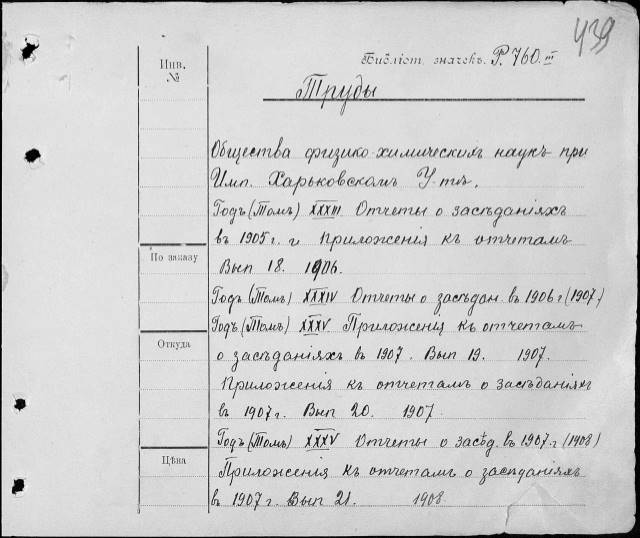 439
Библіот. значекъ. Р. 760. III
Инв.
№
Труды
Общества физико-химическихъ наукъ при
Имп. Харьковскомъ У-тѣ.
Годъ (Томъ) XXXIII. Отчеты о засѣданіяхъ
въ 1905 г. и Приложенія къ отчетамъ
По заказу
Вып 18. 1906.
Годъ (Томъ) XXXIV Отчеты о засѣдан. въ 1906 г (1907.)
Годъ (Томъ) XXXV. Приложенія къ отчетамъ
Откуда
о засѣданіяхъ въ 1907. Вып 19. 1907.
Приложенія къ отчетамъ о засѣданіяхъ
въ 1907 г. Вып 20. 1907.
Годъ (Томъ) XXXV Отчеты о засѣд. въ 1907. г (1908)
Цѣна
Приложенія къ отчетамъ о засѣданіяхъ
въ 1907 г. Вып 21. 1908.